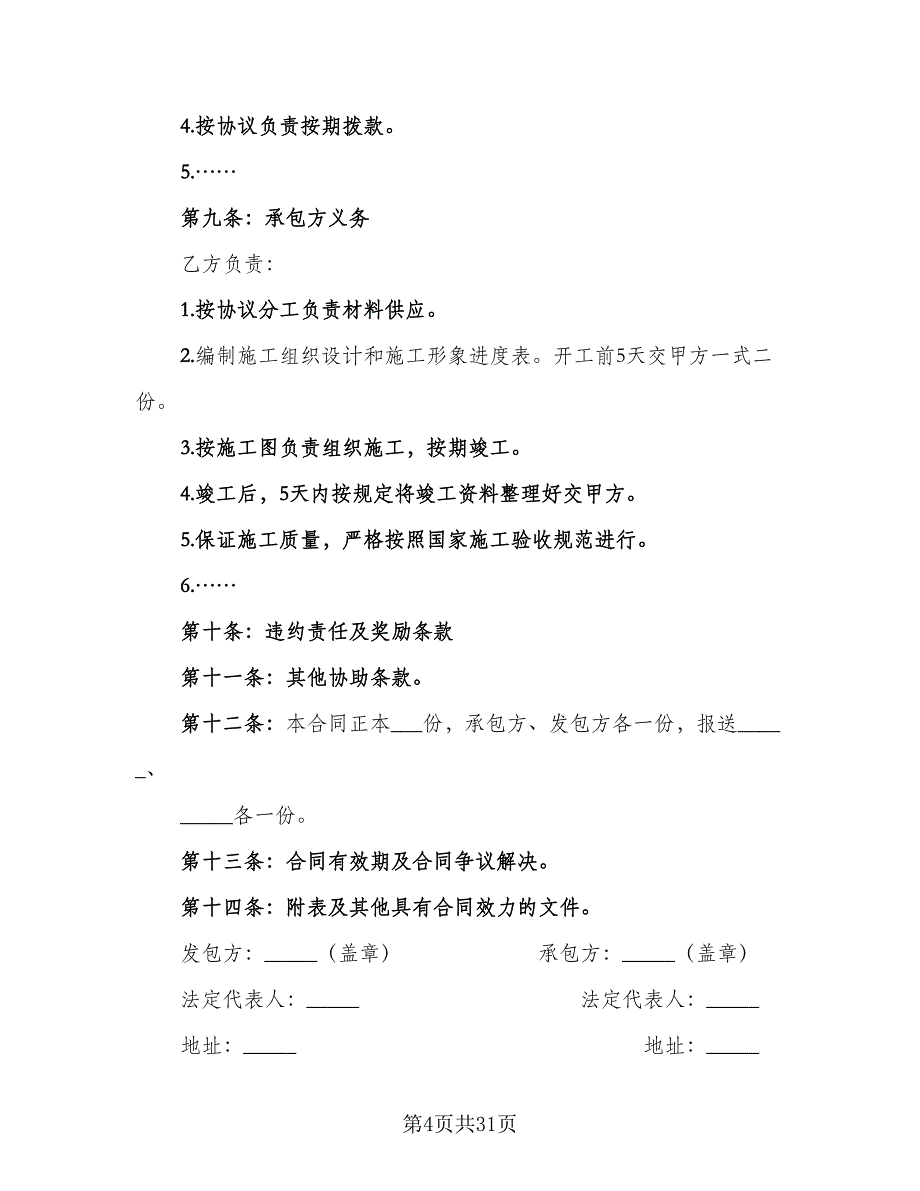 4.按协议负责按期拨款。
5.……
第九条：承包方义务
乙方负责：
1.按协议分工负责材料供应。
2.编制施工组织设计和施工形象进度表。开工前5天交甲方一式二
份。
3.按施工图负责组织施工，按期竣工。
4.竣工后，5天内按规定将竣工资料整理好交甲方。
5.保证施工质量，严格按照国家施工验收规范进行。
6.……
第十条：违约责任及奖励条款
第十一条：其他协助条款。
第十二条：本合同正本___份，承包方、发包方各一份，报送____
_、
_____各一份。
第十三条：合同有效期及合同争议解决。
第十四条：附表及其他具有合同效力的文件。
发包方：_____（盖章） 承包方：_____（盖章）
法定代表人：_____ 法定代表人：_____
地址：_____ 地址：_____
第4页共31页